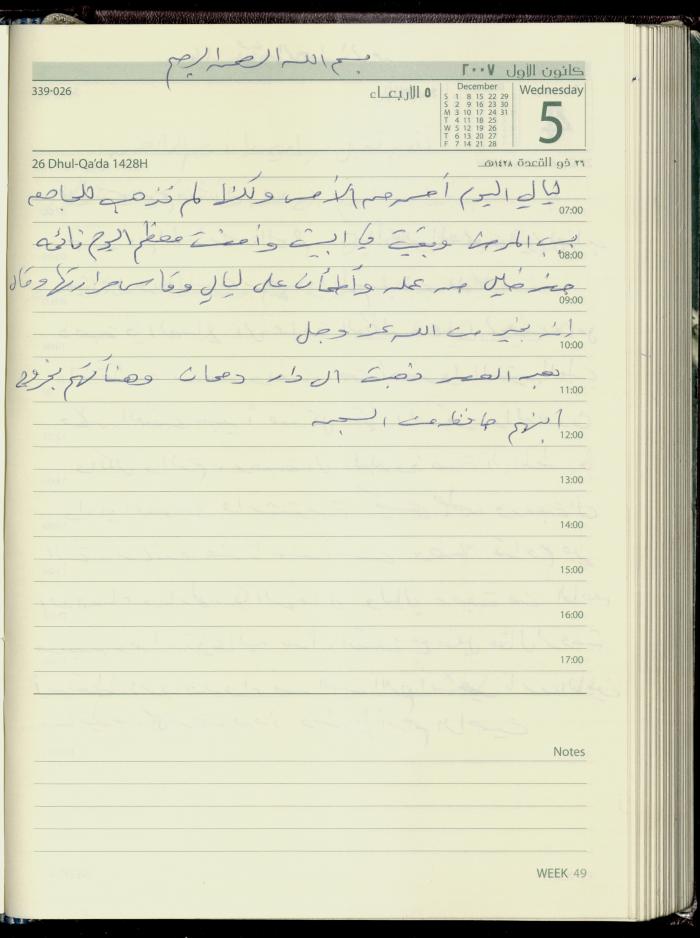 بسم الله الرحمن الرحيم
كانون الأول ٢٠٠٧
339-026
٥ الاربعاء
December
S 1 8 15 22 29
S 2 9 16 23 30
M 3 10 17 24 31
T 4 11 18 25
W 5 12 19 26
T 6 13 20 27
F 7 14 21 28
Wednesday
5
26 Dhul-Qa'da 1428H
٢٦ ذو القعدة ١٤٢٨هـ
ليالي اليوم أحسن من الأمس ولكن لم تذهب للجامعه
07:00
بسبب المرض وبقيت في البيت وأمضت معظم اليوم نائمه
08:00
حضر خليل من عمله وأطمأن على ليالي وقاس حرارتها وقال
09:00
إنه بخير من الله عز وجل
10:00
بعد العصر ذهبت الى دار دحان وهنأتهم بخروج
11:00
ابنهم حافظ من السجن
12:00
13:00
14:00
15:00
16:00
17:00
Notes
WEEK 49